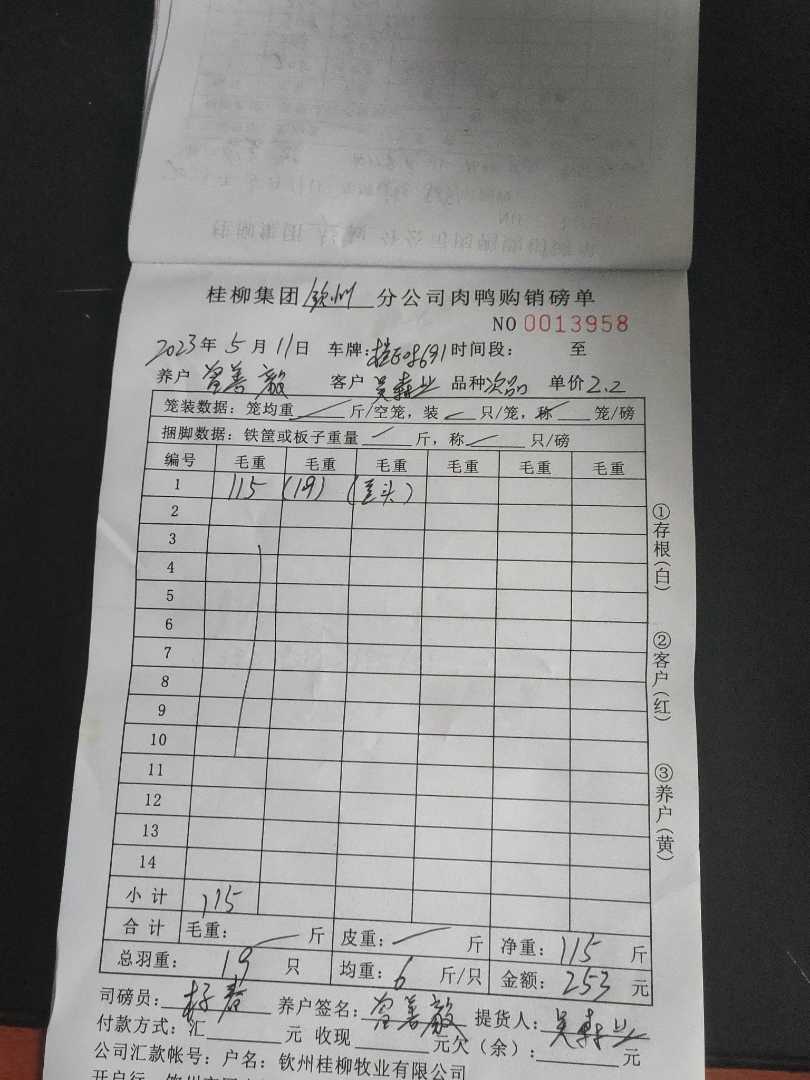 桂柳集团 钦州 分公司肉鸭购销磅单
NO 0013958
2023年5月11日 车牌: 时间段: 至
养户 曾善毅 客户 品种次品 单价2.2
笼装数据: 笼均重 斤/空笼, 装 只/笼, 称 笼/磅
捆脚数据: 铁筐或板子重量 斤, 称 只/磅
编号 毛重 毛重 毛重 毛重 毛重 毛重
1 115 (19)
2
3
4
5
6
7
8
9
10
11
12
13
14
小计 115
合计 毛重: 斤 皮重: 斤 净重: 115 斤
总羽重: 19 只 均重: 6 斤/只 金额: 253 元
司磅员: 养户签名: 曾善毅 提货人:
付款方式: 汇 元 收现 元欠(余): 元
公司汇款帐号: 户名: 钦州桂柳牧业有限公司
①存根(白)
②客户(红)
③养户(黄)